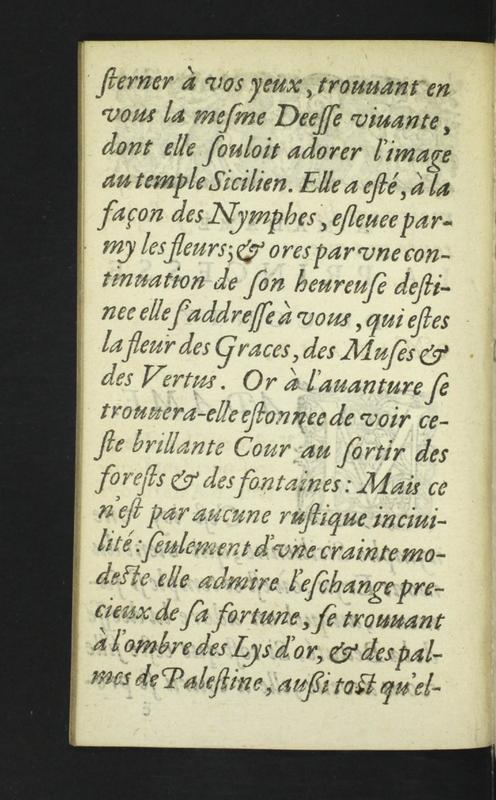 ſterner à vos yeux, trouuant en
vous la meſme Deeſſe viuante,
dont elle ſouloit adorer l'image
au temple Sicilien. Elle a eſté, à la
façon des Nymphes, eſleuee par-
my les fleurs; & ores par vne con-
tinuation de ſon heureuſe deſti-
nee elle ſ'addreſſe à vous, qui eſtes
la fleur des Graces, des Muſes &
des Vertus. Or à l'auanture ſe
trouuera-elle eſtonnee de voir ce-
ſte brillante Cour au ſortir des
foreſts & des fontaines: Mais ce
n'eſt par aucune ruſtique inciui-
lité: ſeulement d'vne crainte mo-
deste elle admire l'eſchange pre-
cieux de ſa fortune, ſe trouuant
à l'ombre des Lys d'or, & des pal-
mes de Paleſtine, auſſi tost qu'el-